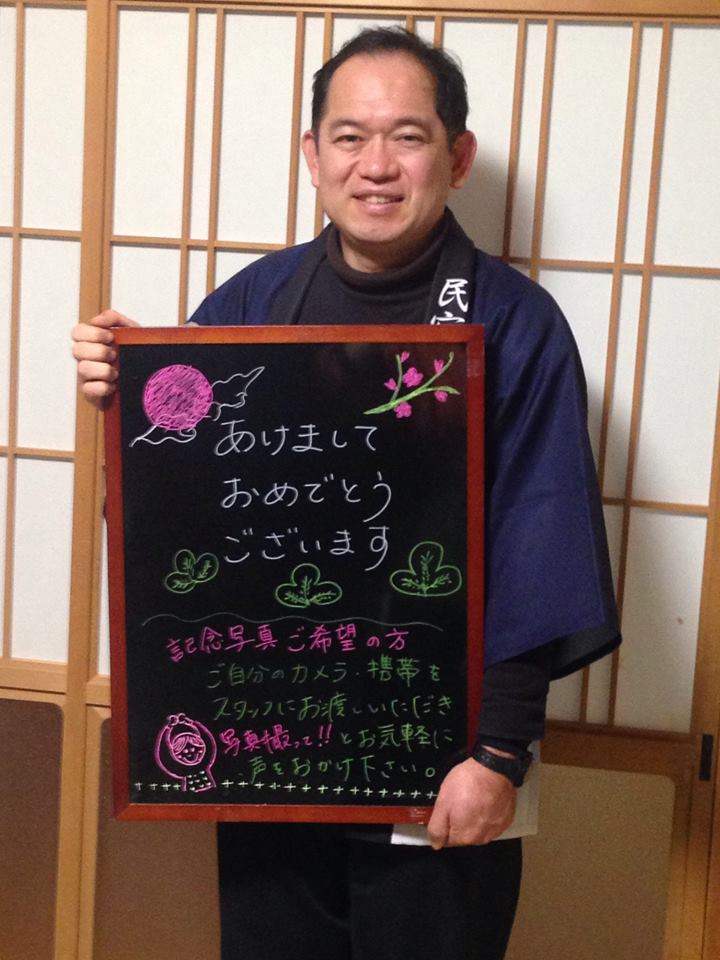 民宿
あけまして
おめでとう
ございます
記念写真ご希望の方
ご自分のカメラ・携帯を
スタッフにお渡しいただき
写真撮って!!とお気軽に
声をおかけ下さい。